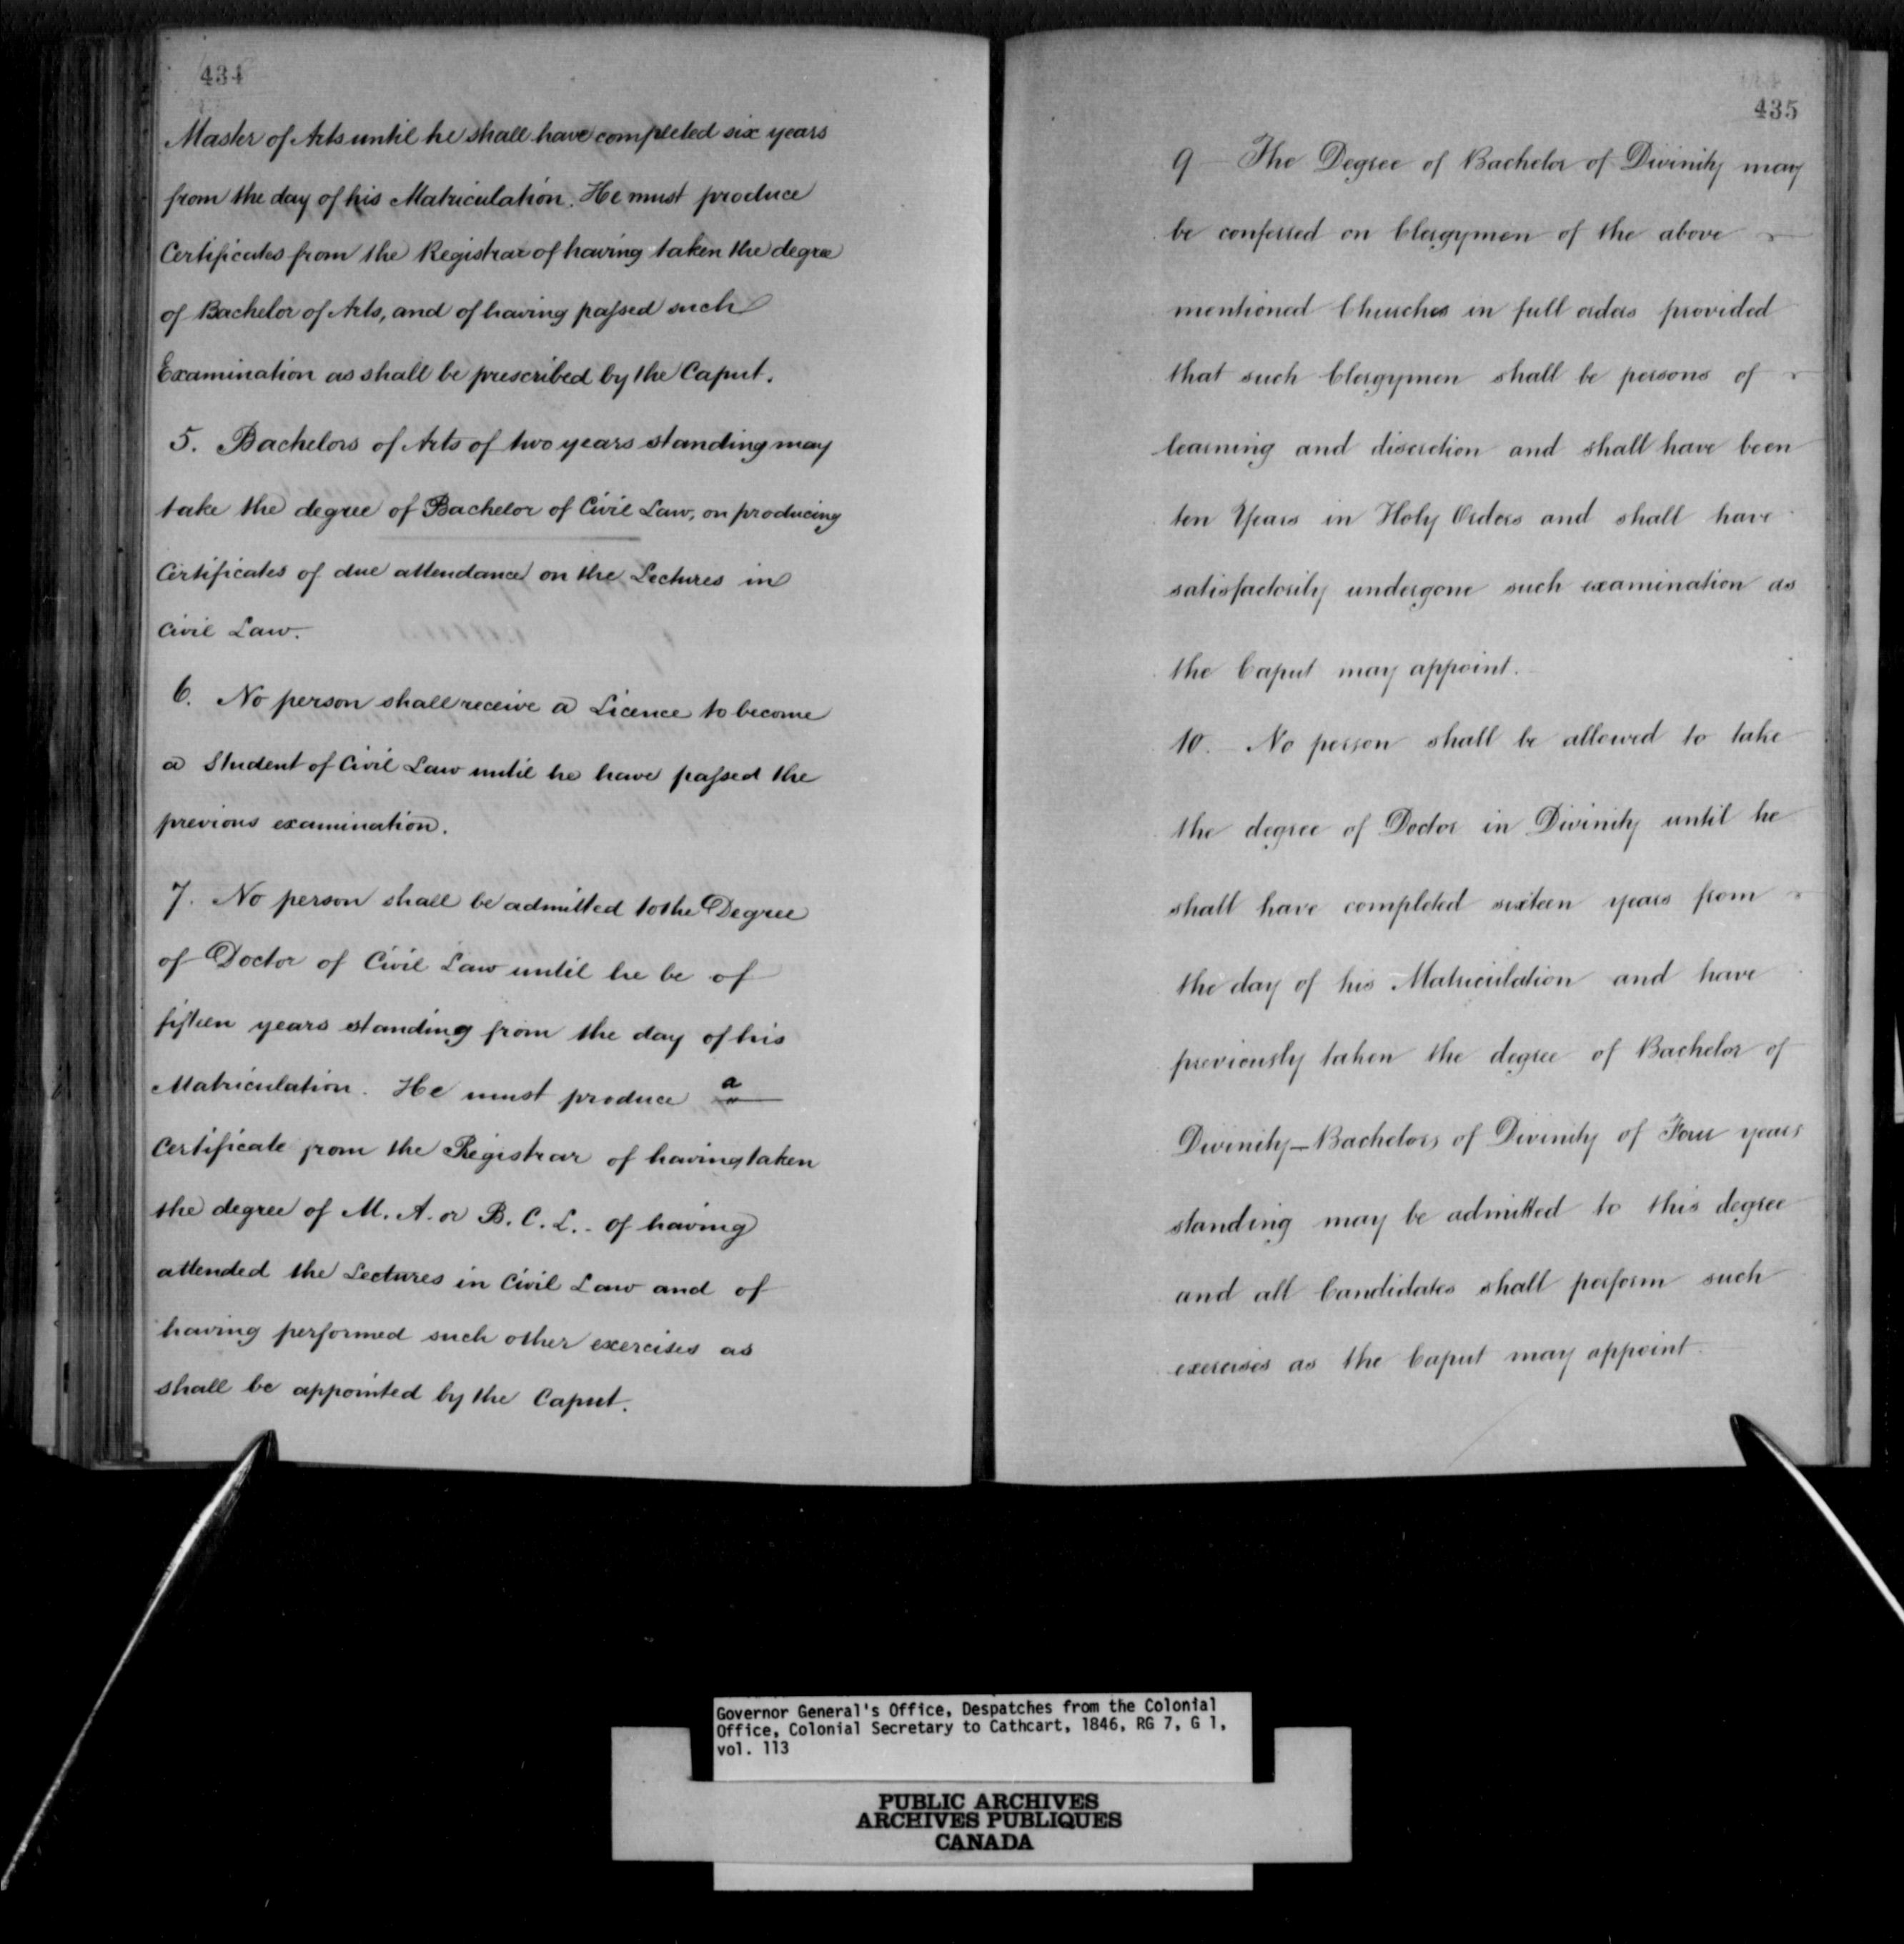 434
Master of Arts until he shall have completed six years
from the day of his Matriculation. He must produce
Certificates from the Registrar of having taken the degree
of Bachelor of Arts, and of having passed such
Examination as shall be prescribed by the Caput.
5. Bachelors of Arts of two years standing may
take the degree of Bachelor of Civil Law, on producing
Certificates of due attendance on the Lectures in
Civil Law.
6. No person shall receive a Licence to become
a Student of Civil Law until he have passed the
previous examination.
7. No person shall be admitted to the Degree
of Doctor of Civil Law until he be of
fifteen years standing from the day of his
Matriculation. He must produce a
Certificate from the Registrar of having taken
the degree of M. A. or B. C. L. - of having
attended the Lectures in Civil Law and of
having performed such other exercises as
shall be appointed by the Caput.
435
9 The Degree of Bachelor of Divinity may
be conferred on Clergymen of the above
mentioned Churches in full orders provided
that such Clergymen shall be persons of
learning and discretion and shall have been
ten Years in Holy Orders and shall have
satisfactorily undergone such examination as
the Caput may appoint.
10. No person shall be allowed to take
the degree of Doctor in Divinity until he
shall have completed sixteen years from
the day of his Matriculation and have
previously taken the degree of Bachelor of
Divinity - Bachelors of Divinity of Four years
standing may be admitted to this degree
and all Candidates shall perform such
exercises as the Caput may appoint.
Governor General's Office, Despatches from the Colonial
Office, Colonial Secretary to Cathcart, 1846, RG 7, G 1,
vol. 113
PUBLIC ARCHIVES
ARCHIVES PUBLIQUES
CANADA